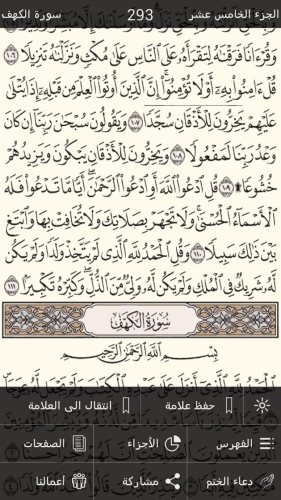 الجزء الخامس عشر 293 سورة الكهف
وَقُرْءَانًا فَرَقْنَٰهُ لِتَقْرَأَهُۥ عَلَى ٱلنَّاسِ عَلَىٰ مُكْثٍ وَنَزَّلْنَٰهُ تَنزِيلًا ١٠٦
قُلْ ءَامِنُوا۟ بِهِۦٓ أَوْ لَا تُؤْمِنُوٓا۟ إِنَّ ٱلَّذِينَ أُوتُوا۟ ٱلْعِلْمَ مِن قَبْلِهِۦٓ إِذَا يُتْلَىٰ
عَلَيْهِمْ يَخِرُّونَ لِلْأَذْقَانِ سُجَّدًا ١٠٧ وَيَقُولُونَ سُبْحَٰنَ رَبِّنَآ إِن كَانَ
وَعْدُ رَبِّنَا لَمَفْعُولًا ١٠٨ وَيَخِرُّونَ لِلْأَذْقَانِ يَبْكُونَ وَيَزِيدُهُمْ
خُشُوعًا ١٠٩ قُلِ ٱدْعُوا۟ ٱللَّهَ أَوِ ٱدْعُوا۟ ٱلرَّحْمَٰنَ أَيًّا مَّا تَدْعُوا۟ فَلَهُ
ٱلْأَسْمَآءُ ٱلْحُسْنَىٰ وَلَا تَجْهَرْ بِصَلَاتِكَ وَلَا تُخَافِتْ بِهَا وَٱبْتَغِ
بَيْنَ ذَٰلِكَ سَبِيلًا ١١٠ وَقُلِ ٱلْحَمْدُ لِلَّهِ ٱلَّذِى لَمْ يَتَّخِذْ وَلَدًا وَلَمْ يَكُن
لَّهُۥ شَرِيكٌ فِى ٱلْمُلْكِ وَلَمْ يَكُن لَّهُۥ وَلِىٌّ مِّنَ ٱلذُّلِّ وَكَبِّرْهُ تَكْبِيرًۢا ١١١
سُورَةُ الكَهْفِ
بِسْمِ ٱللَّهِ ٱلرَّحْمَٰنِ ٱلرَّحِيمِ
ٱلْحَمْدُ لِلَّهِ ٱلَّذِىٓ أَنزَلَ عَلَىٰ عَبْدِهِ ٱلْكِتَٰبَ وَلَمْ يَجْعَل لَّهُۥ عِوَجَا
حفظ علامة انتقال الى العلامة
الفهرس الأجزاء الصفحات
دعاء الختم مشاركة أعمالنا